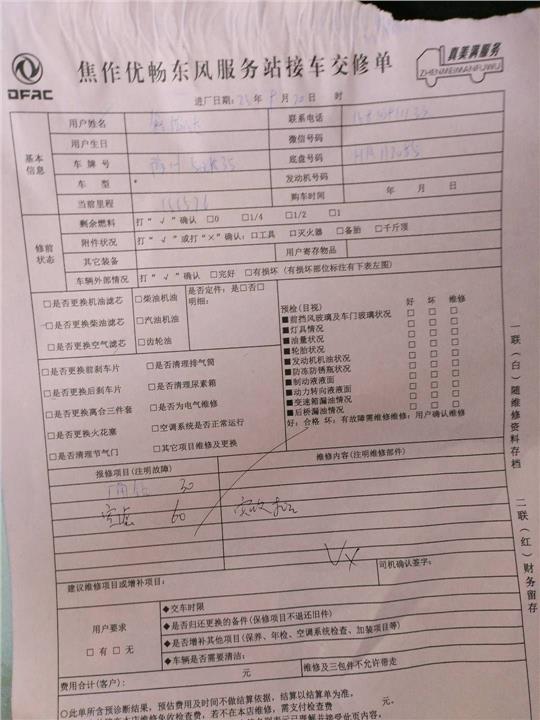 DFAC
焦作优畅东风服务站接车交修单
真美满服务
ZHENMEIMANFUWU
进厂日期：25年 月20日 时
基本信息
用户姓名
联系电话
用户生日
微信号码
车牌号
底盘号码
车型
发动机号码
当前里程
购车时间 年 月 日
修前状态
剩余燃料 打“√”确认 □0 □1/4 □1/2 □1
附件状况 打“√”或打“×”确认：□工具 □灭火器 □备胎 □千斤顶
其它装备
用户寄存物品
车辆外部情况 打“√”确认 □完好 □有损坏（有损坏部位标注有下表左图）
□是否更换机油滤芯 □柴油机油
□是否更换柴油滤芯 □汽油机油
□是否更换空气滤芯 □齿轮油
是否定件：是□否□
明细：
□是否更换前刹车片 □是否清理排气筒
□是否更换后刹车片 □是否清理尿素箱
□是否更换离合三件套 □是否为电气维修
□是否更换火花塞 □空调系统是否正常运行
□是否清理节气门 □其它项目维修及更换
预检（目视） 好 坏 维修
■前挡风玻璃及车门玻璃状况 □ □ □
■灯具情况 □ □ □
■油量状况 □ □ □
■轮胎状况 □ □ □
■发动机机油状况 □ □ □
■防冻防锈瓶状况 □ □ □
■制动液液面 □ □ □
■动力转向液液面 □ □ □
■变速箱漏油情况 □ □ □
■后桥漏油情况 □ □ □
好：合格 坏：有故障需维修维修：用户确认维修
报修项目（注明故障）
维修内容（注明维修部件）
30
60
司机确认签字：
建议维修项目或增补项目：
用户要求
□有 □无
◆交车时限
◆是否归还更换的备件（保修项目不退还旧件）
◆是否增补其他项目（保养、年检、空调系统检查、加装项目等）
◆车辆是否需要清洁：
费用合计（客户）： 元
维修及三包件不允许带走
○此单所含预诊断结果，预估费用及时间不做结算依据，结算以结算单为准。
元。
一联（白）随维修资料存档
二联（红）财务留存